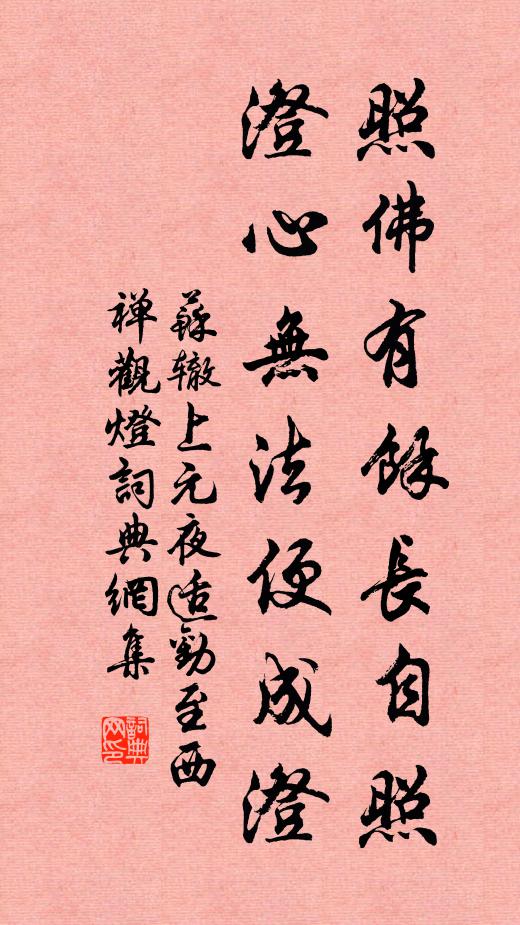 照佛有餘長自照
澄心無法便成澄
蘇轍上元夜适勸至西
禅觀燈詞典網集
詞典
网印